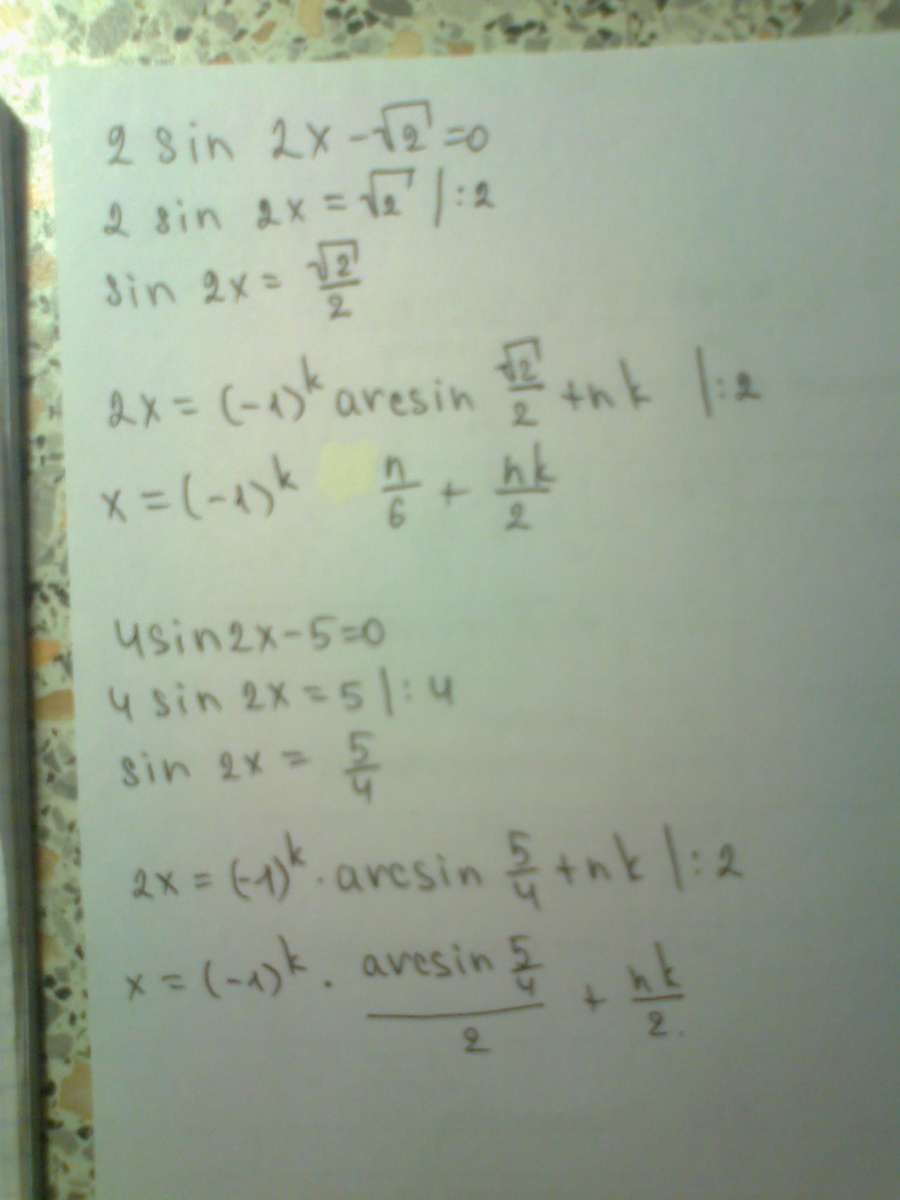 2 sin 2x - √2 = 0
2 sin 2x = √2 | : 2
sin 2x = √2/2
2x = (-1)^k arcsin √2/2 + πk | : 2
x = (-1)^k π/6 + πk/2
4sin2x - 5 = 0
4 sin 2x = 5 | : 4
sin 2x = 5/4
2x = (-1)^k · arcsin 5/4 + πk | : 2
x = (-1)^k · (arcsin 5/4)/2 + πk/2.